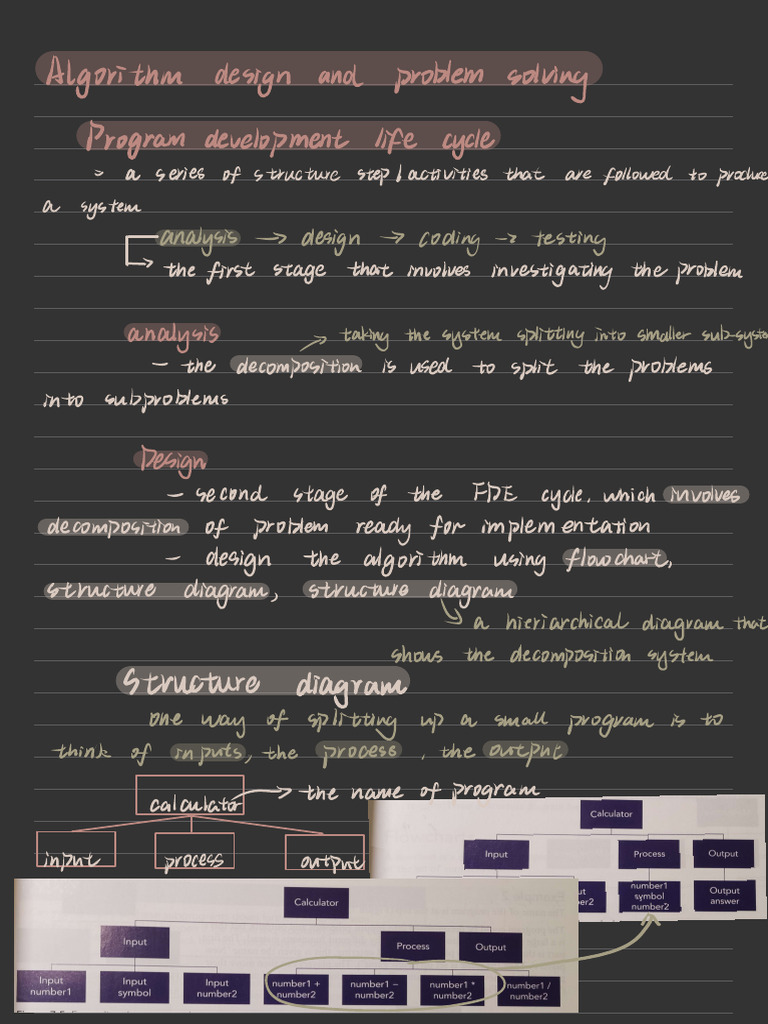 Algorithm design and problem solving
Program development life cycle
> a series of structure step / activities that are followed to produce
a system
analysis → design → coding → testing
the first stage that involves investigating the problem
analysis
taking the system splitting into smaller sub-system
– the decomposition is used to split the problems
into subproblems
Design
– second stage of the FDE cycle, which involves
decomposition of problem ready for implementation
– design the algorithm using flowchart,
structure diagram, structure diagram
a hieriarchical diagram that
shows the decomposition system
Structure diagram
one way of splitting up a small program is to
think of inputs, the process, the output
calculator → the name of program
input process output
Calculator
Input Process Output
number1 symbol number2
Output answer
Calculator
Input Process Output
Input number1
Input symbol
Input number2
number1 + number2
number1 – number2
number1 * number2
number1 / number2